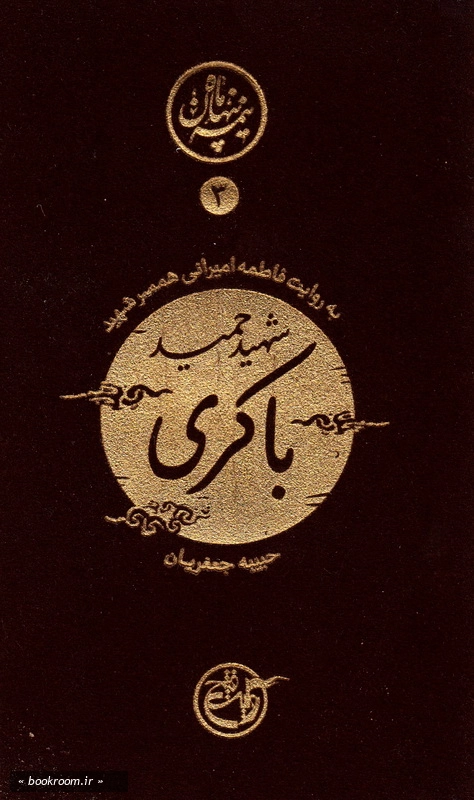 نیمه پنهان ماه
۳
به روایت فاطمه امیرانی همسر شهید
شهید حمید
باکری
حبیبه جعفریان
روایت فتح
« bookroom.ir »